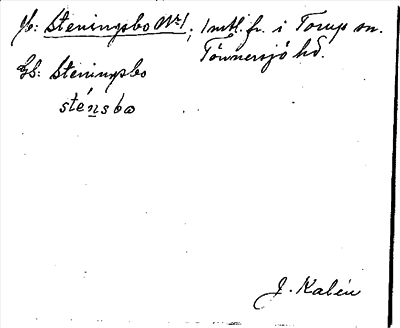 Jb: Steningsbo Nr 1, 1 mtl. fr. i Torups sn.
Tönnersjö hd.
Gb: Steningsbo
sténsbo
J. Kalén